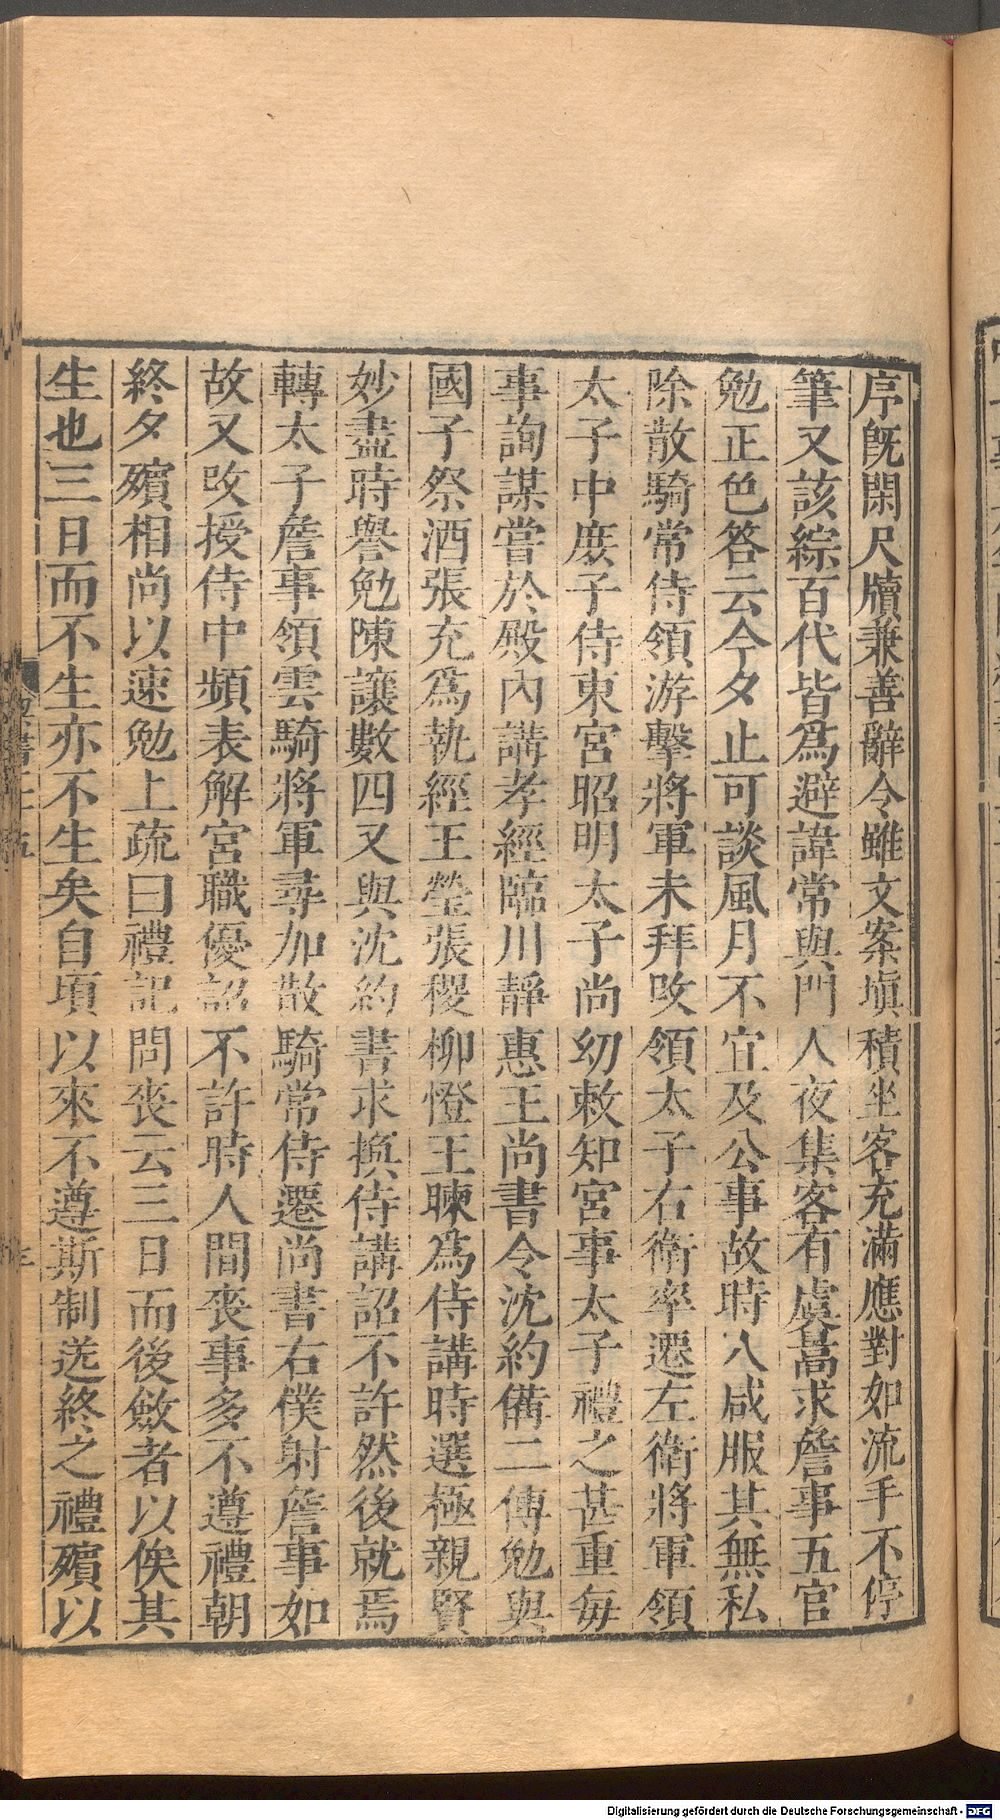 序既閑尺牘兼善辭令雖文案塡積坐客充滿應對如流手不停
筆又該綜百代皆爲避諱常與門人夜集客有虞暠求詹事五官
勉正色答云今夕止可談風月不宜及公事故時人咸服其無私
除散騎常侍領游擊將軍未拜改領太子右衛率遷左衛將軍領
太子中庶子侍東宮昭明太子尚幼敕知宮事太子禮之甚重每
事詢謀嘗於殿內講孝經臨川靜惠王尚書令沈約備二傅勉與
國子祭酒張充爲執經王瑩張稷柳憕王暕爲侍講時選極親賢
妙盡時譽勉陳讓數四又與沈約書求換侍講詔不許然後就焉
轉太子詹事領雲騎將軍尋加散騎常侍遷尚書右僕射詹事如
故又改授侍中頻表解宮職優詔不許時人間喪事多不遵禮朝
終夕殯相尚以速勉上疏曰禮記問喪云三日而後斂者以俟其
生也三日而不生亦不生矣自頃以來不遵斯制送終之禮殯以
Digitalisierung gefördert durch die Deutsche Forschungsgemeinschaft - DFG